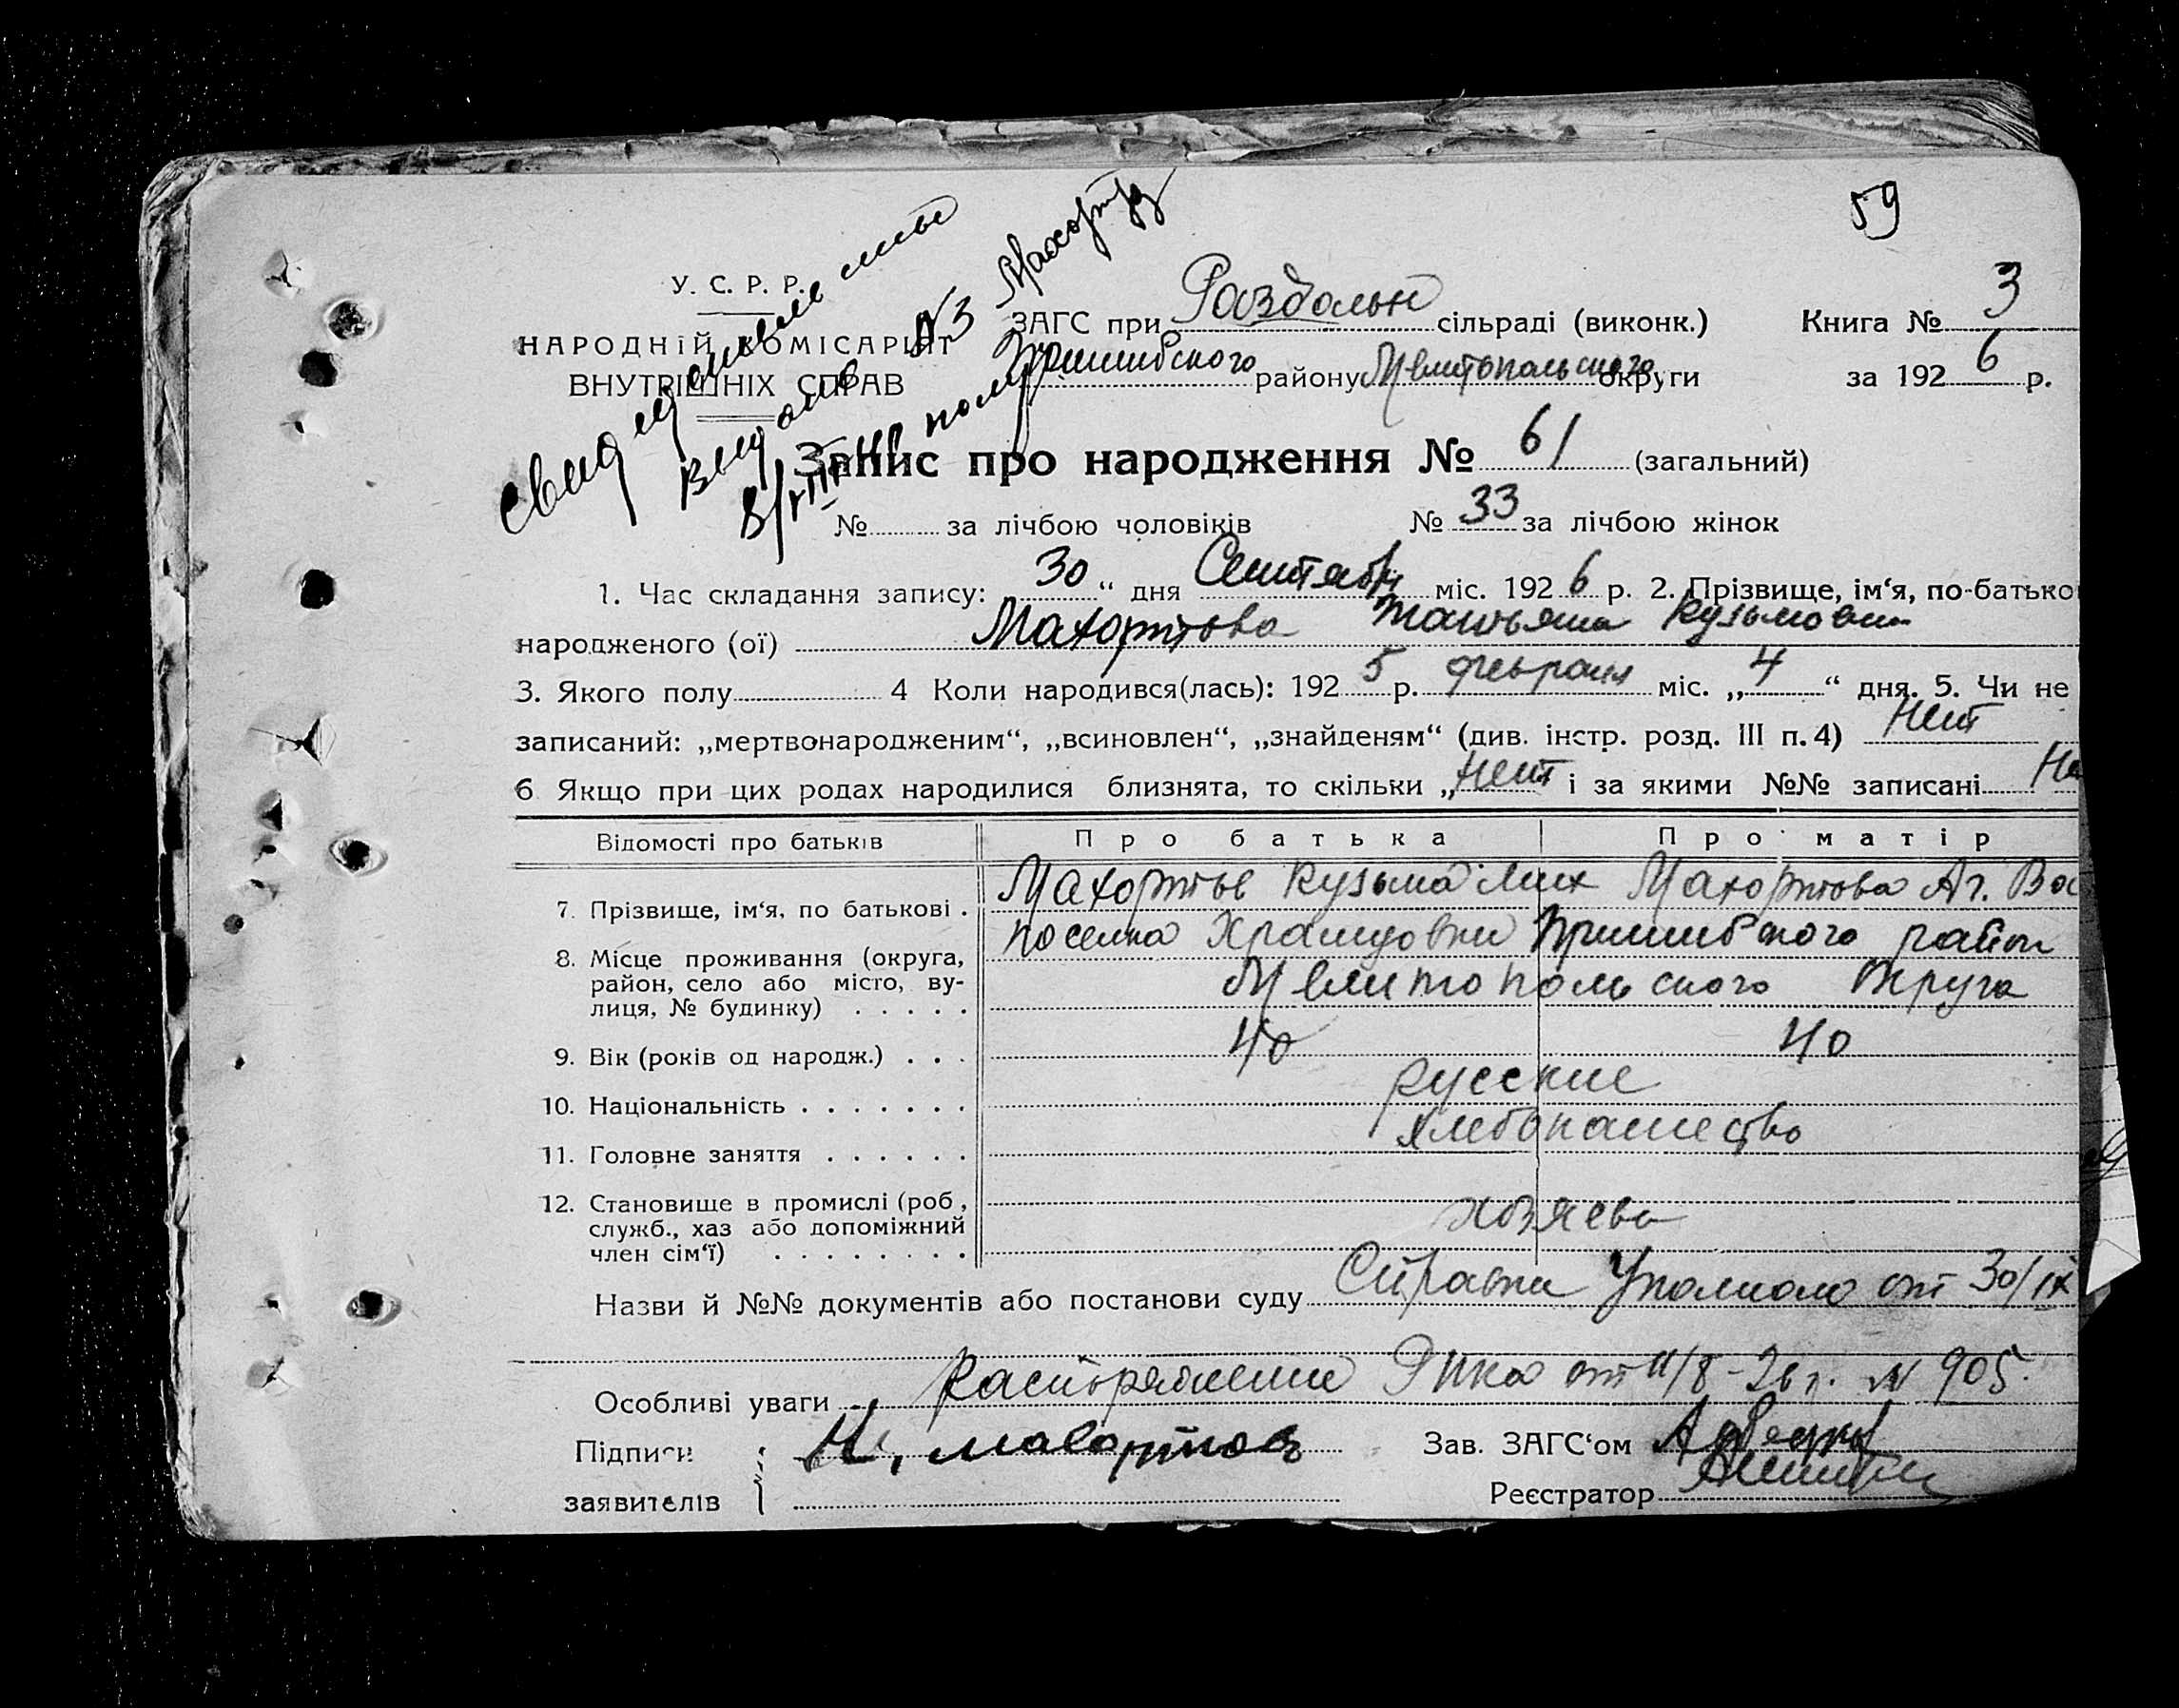 59
У. С. Р. Р.
НАРОДНІЙ КОМІСАРІЯТ
ВНУТРІШНІХ СПРАВ
ЗАГС при Раздольн сільраді (виконк.) Книга № 3
Пришибского району Мелитопольского округи за 1926 р.
Запис про народження № 61 (загальний)
№ за лічбою чоловіків № 33 за лічбою жінок
1. Час складання запису: 30 “ дня Сентября міс. 1926 р. 2. Прізвище, ім‘я, по-батько
народженого (ої) Махортова Татьяна Кузьмовна
3. Якого полу 4 Коли народився(лась): 1925 р. февраля міс. „ 4 “ дня. 5. Чи не
записаний: „мертвонародженим“, „всиновлен“, „знайденям“ (див. інстр. розд. III п. 4) Нет
6 Якщо при цих родах народилися близнята, то скільки „ Нет і за якими №№ записані Не
Відомості про батьків Про батька Про матір
7. Прізвище, ім‘я, по батькові . Махортов Кузьма Мих Махортова Аг. Вас
8. Місце проживання (округа, поселка Пришибского район
район, село або місто, ву- Мелитопольского Округа
лиця, № будинку) . . . . .
9. Вік (років од народж.) . . . 40 40
10. Національність . . . . . . . русские
11. Головне заняття . . . . . . хлебопашество
12. Становище в промислі (роб ,
служб., хаз або допоміжний хозяева
член сім‘ї) . . . . . . . .
Назви й №№ документів або постанови суду Справка от 30/IX
Особливі уваги Распоряжение от 11/8-26 г. № 905.
Підписи Махортов Зав. ЗАГС‘ом
заявителів Реєстратор
Свидетельство
выдано №3